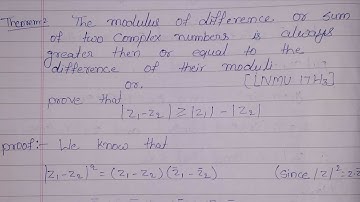 Theorem:2 The modulus of difference or sum
of two complex numbers is always
greater then or equal to the
difference of their moduli
or. [LNMU 17H3]
prove that
|z₁-z₂| ≥ |z₁| - |z₂|
proof:- We know that
|z₁-z₂|² = (z₁-z₂)(z̄₁-z̄₂) (Since |z|² = z.z̄